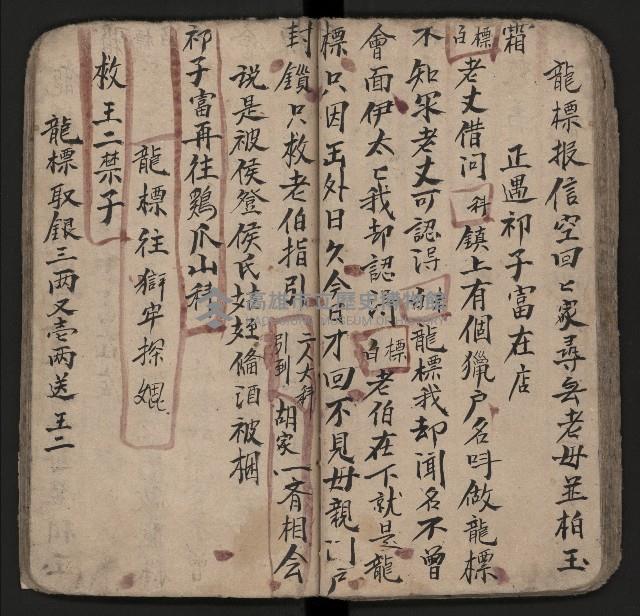 龍標报信空回〻家尋无老母並柏玉
霜 正遇祁子富在店
白標 老丈借问 科 鎮上有個獵户名呌做龍標
不知尔老丈可認得 龍標我却闻名不曾
會面伊太〻我却認得 白標 老伯在下就是龍
標只因玉外日久今日才回不見母親门户
封鎖只救老伯指引 二人大科 引到 胡家一齐相会
说是被侯登侯氏姑姪偹酒被捆
祁子富再往鷄爪山科
龍標往獄牢探
救王二禁子
龍標取銀三两又壱两送王二
高雄市立歷史博物館
KAOHSIUNG MUSEUM OF HISTORY